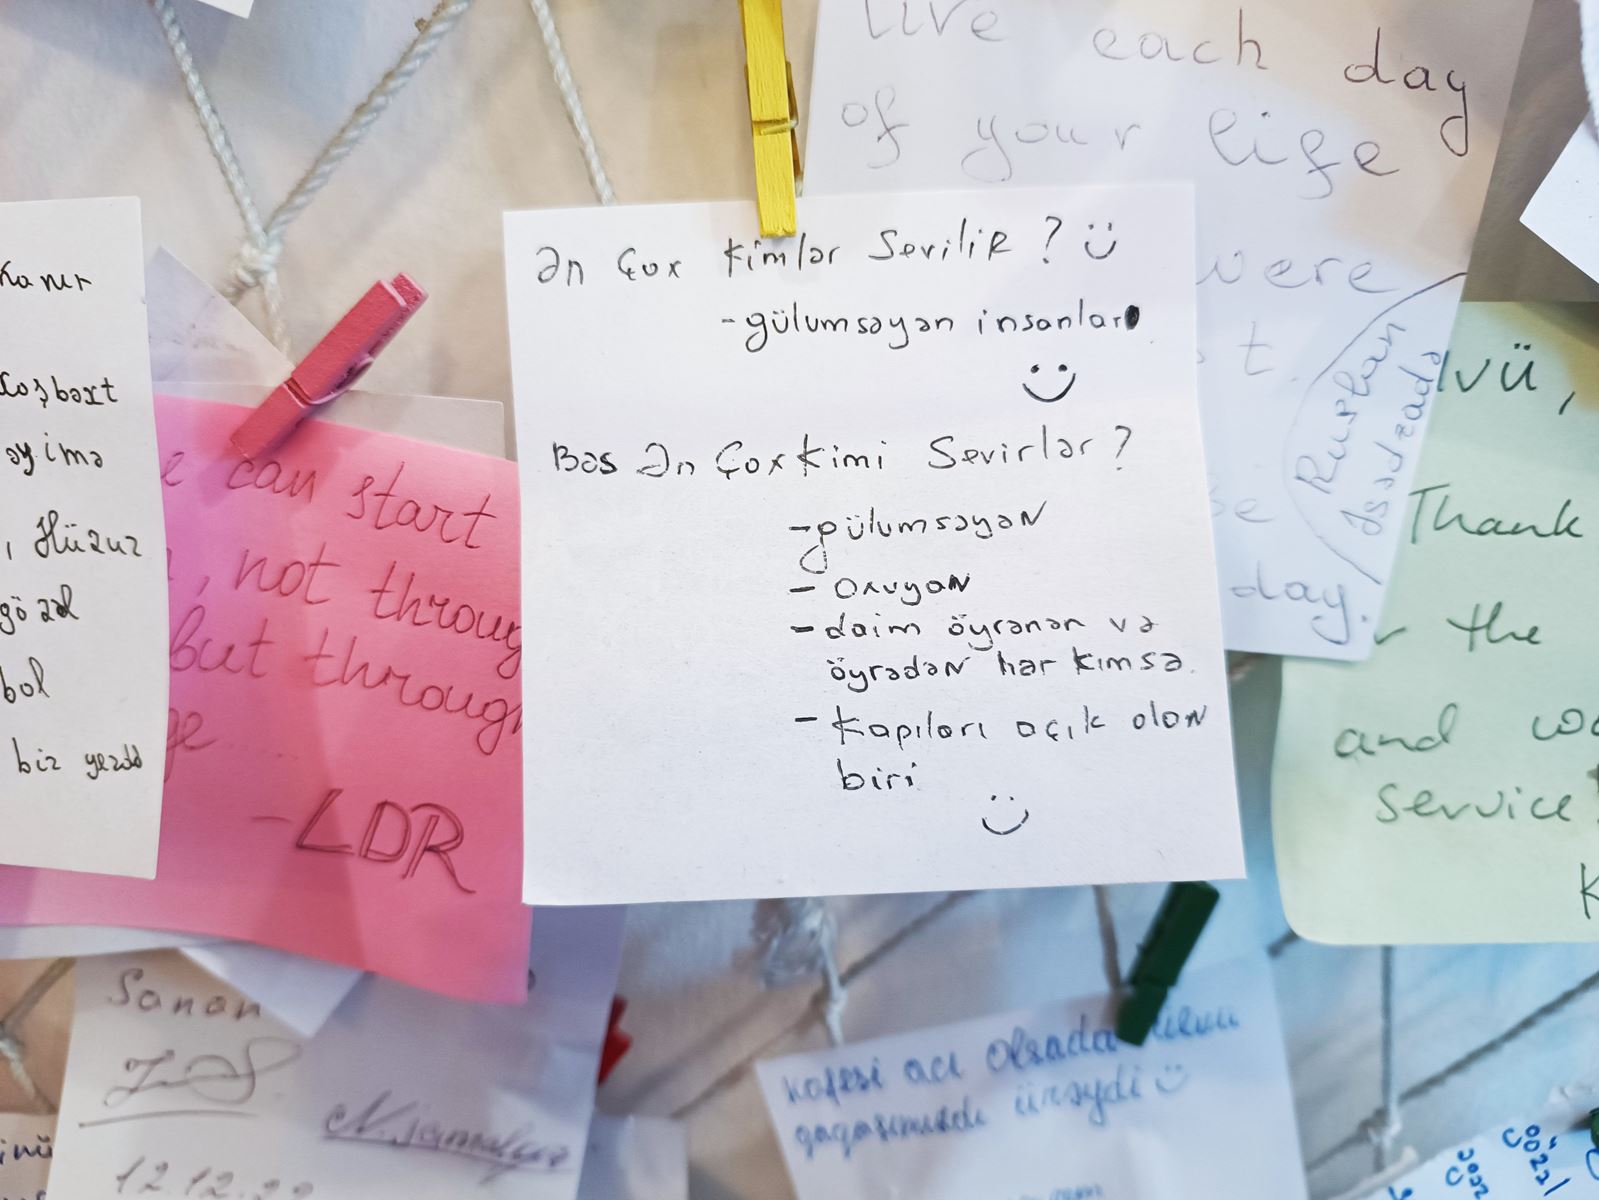 live each day
of your life
were
t.
day.
Ruslan
Əsədzadə
Ən Çox kimlər Sevilir? Ü
- gülumsəyən insanlar
Bəs Ən Çox kimi Sevirlər?
- gülumsəyən
- oxuyan
- daim öyrənən və
öyrədən hər kimsə.
- kapıları açık olan
biri
xoşbəxt
əyimə
, Hüzur
gözəl
bol
biz yerdə
can start
, not throug
but through
-LDR
lvü,
Thank
the
and
service!
K
Sənan
12.12.22
kofesi acı olsada
ürəydi